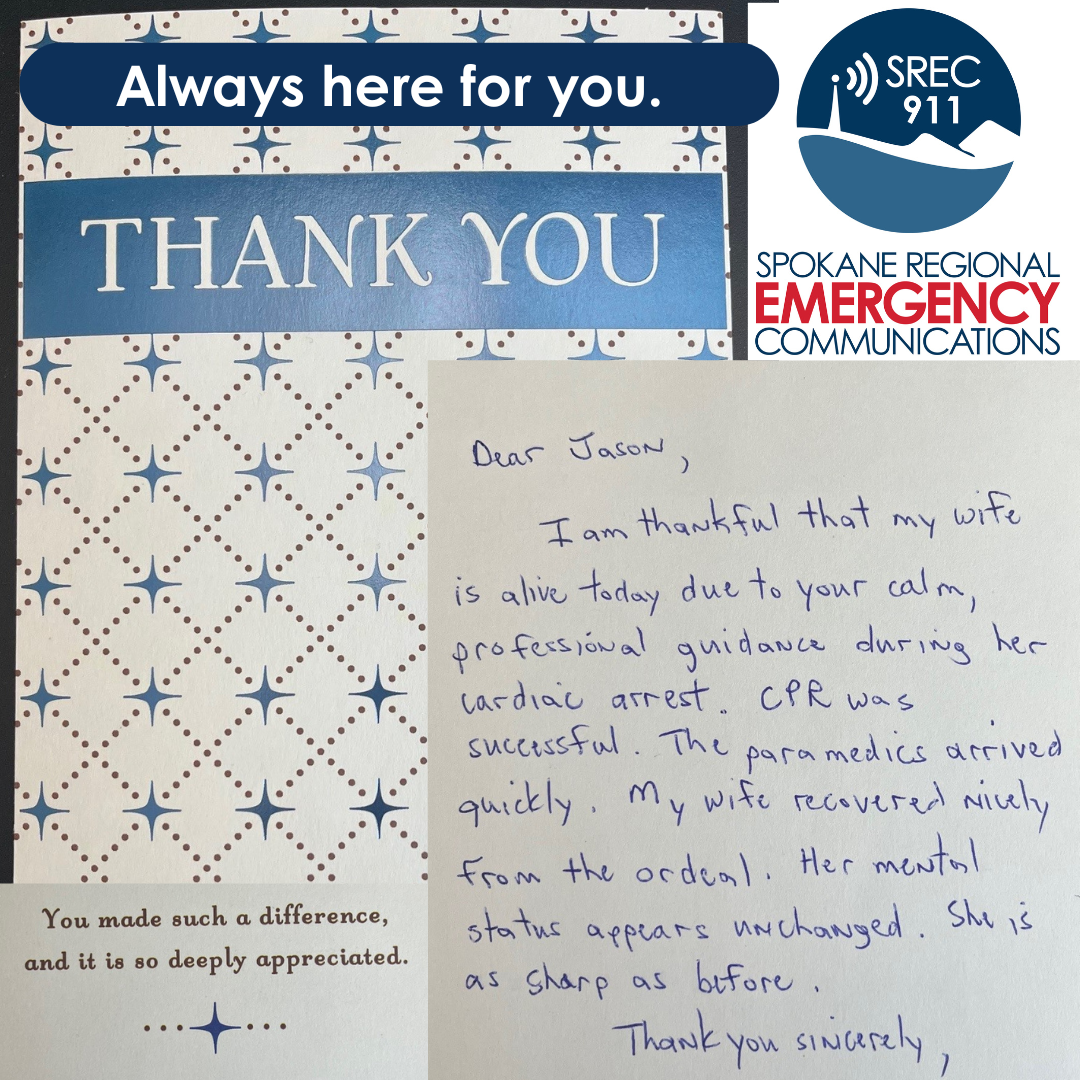 Always here for you.
SREC
911
SPOKANE REGIONAL
EMERGENCY
COMMUNICATIONS
THANK YOU
Dear Jason,
I am thankful that my wife
is alive today due to your calm,
professional guidance during her
cardiac arrest. CPR was
successful. The paramedics arrived
quickly. My wife recovered nicely
from the ordeal. Her mental
status appears unchanged. She is
as sharp as before.
Thank you sincerely,
You made such a difference,
and it is so deeply appreciated.